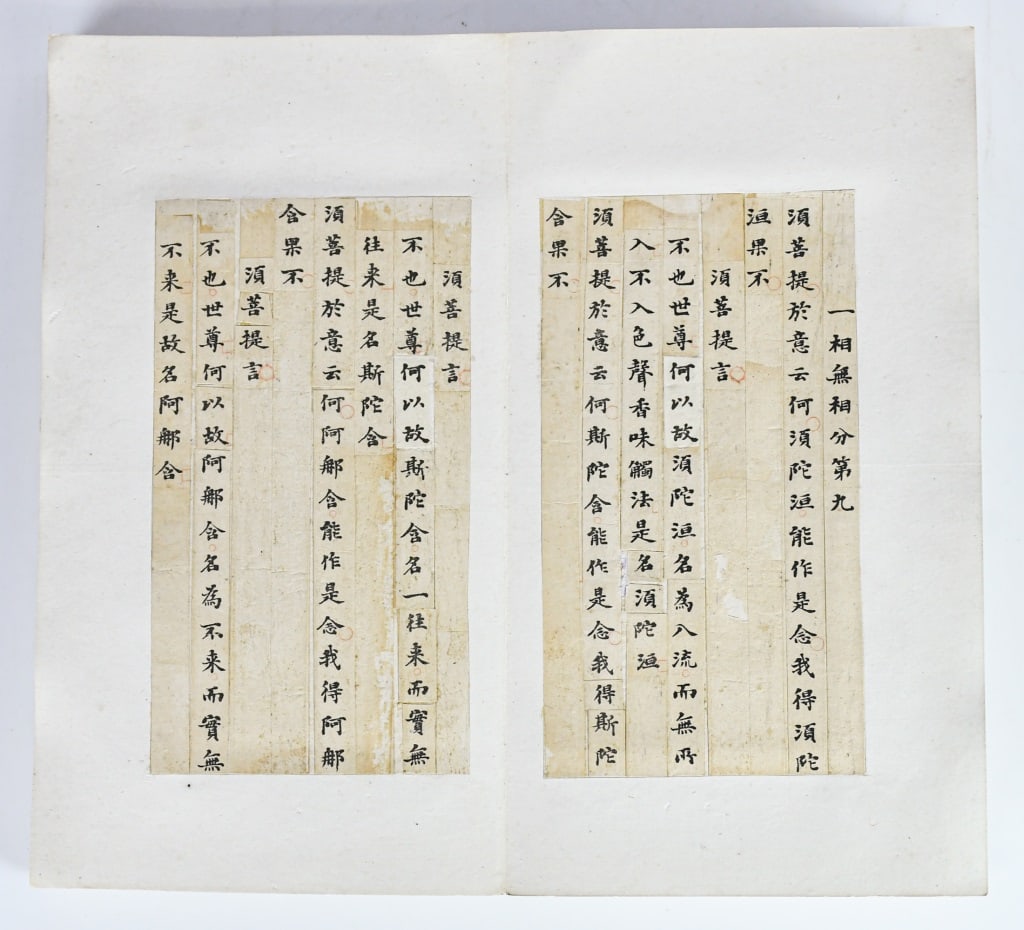 一相無相分第九
須菩提於意云何須陀洹能作是念我得須陀
洹果不
須菩提言
不也世尊何以故須陀洹名為入流而無所
入不入色聲香味觸法是名須陀洹
須菩提於意云何斯陀含能作是念我得斯陀
含果不
須菩提言
不也世尊何以故斯陀含名一往来而實無
往来是名斯陀含
須菩提於意云何阿那含能作是念我得阿那
含果不
須菩提言
不也世尊何以故阿那含名為不来而實無
不来是故名阿那含